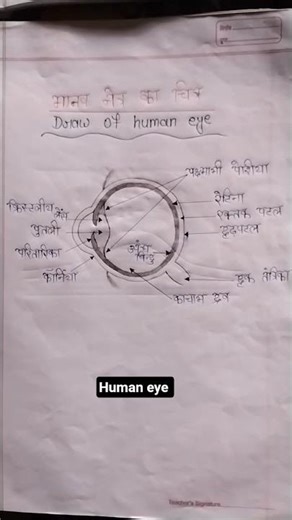 मानव नेत्र का चित्र
Draw of human eye
पक्ष्माभी पेशीया
क्रिस्टलीय लेंस
रेटिना
रक्तक पटल
पुतली
दृढ़पटल
परितारिका
अंध बिंदु
कॉर्निया
दृक तंत्रिका
काचाभ द्रव
Human eye
Date
Teacher's Signature